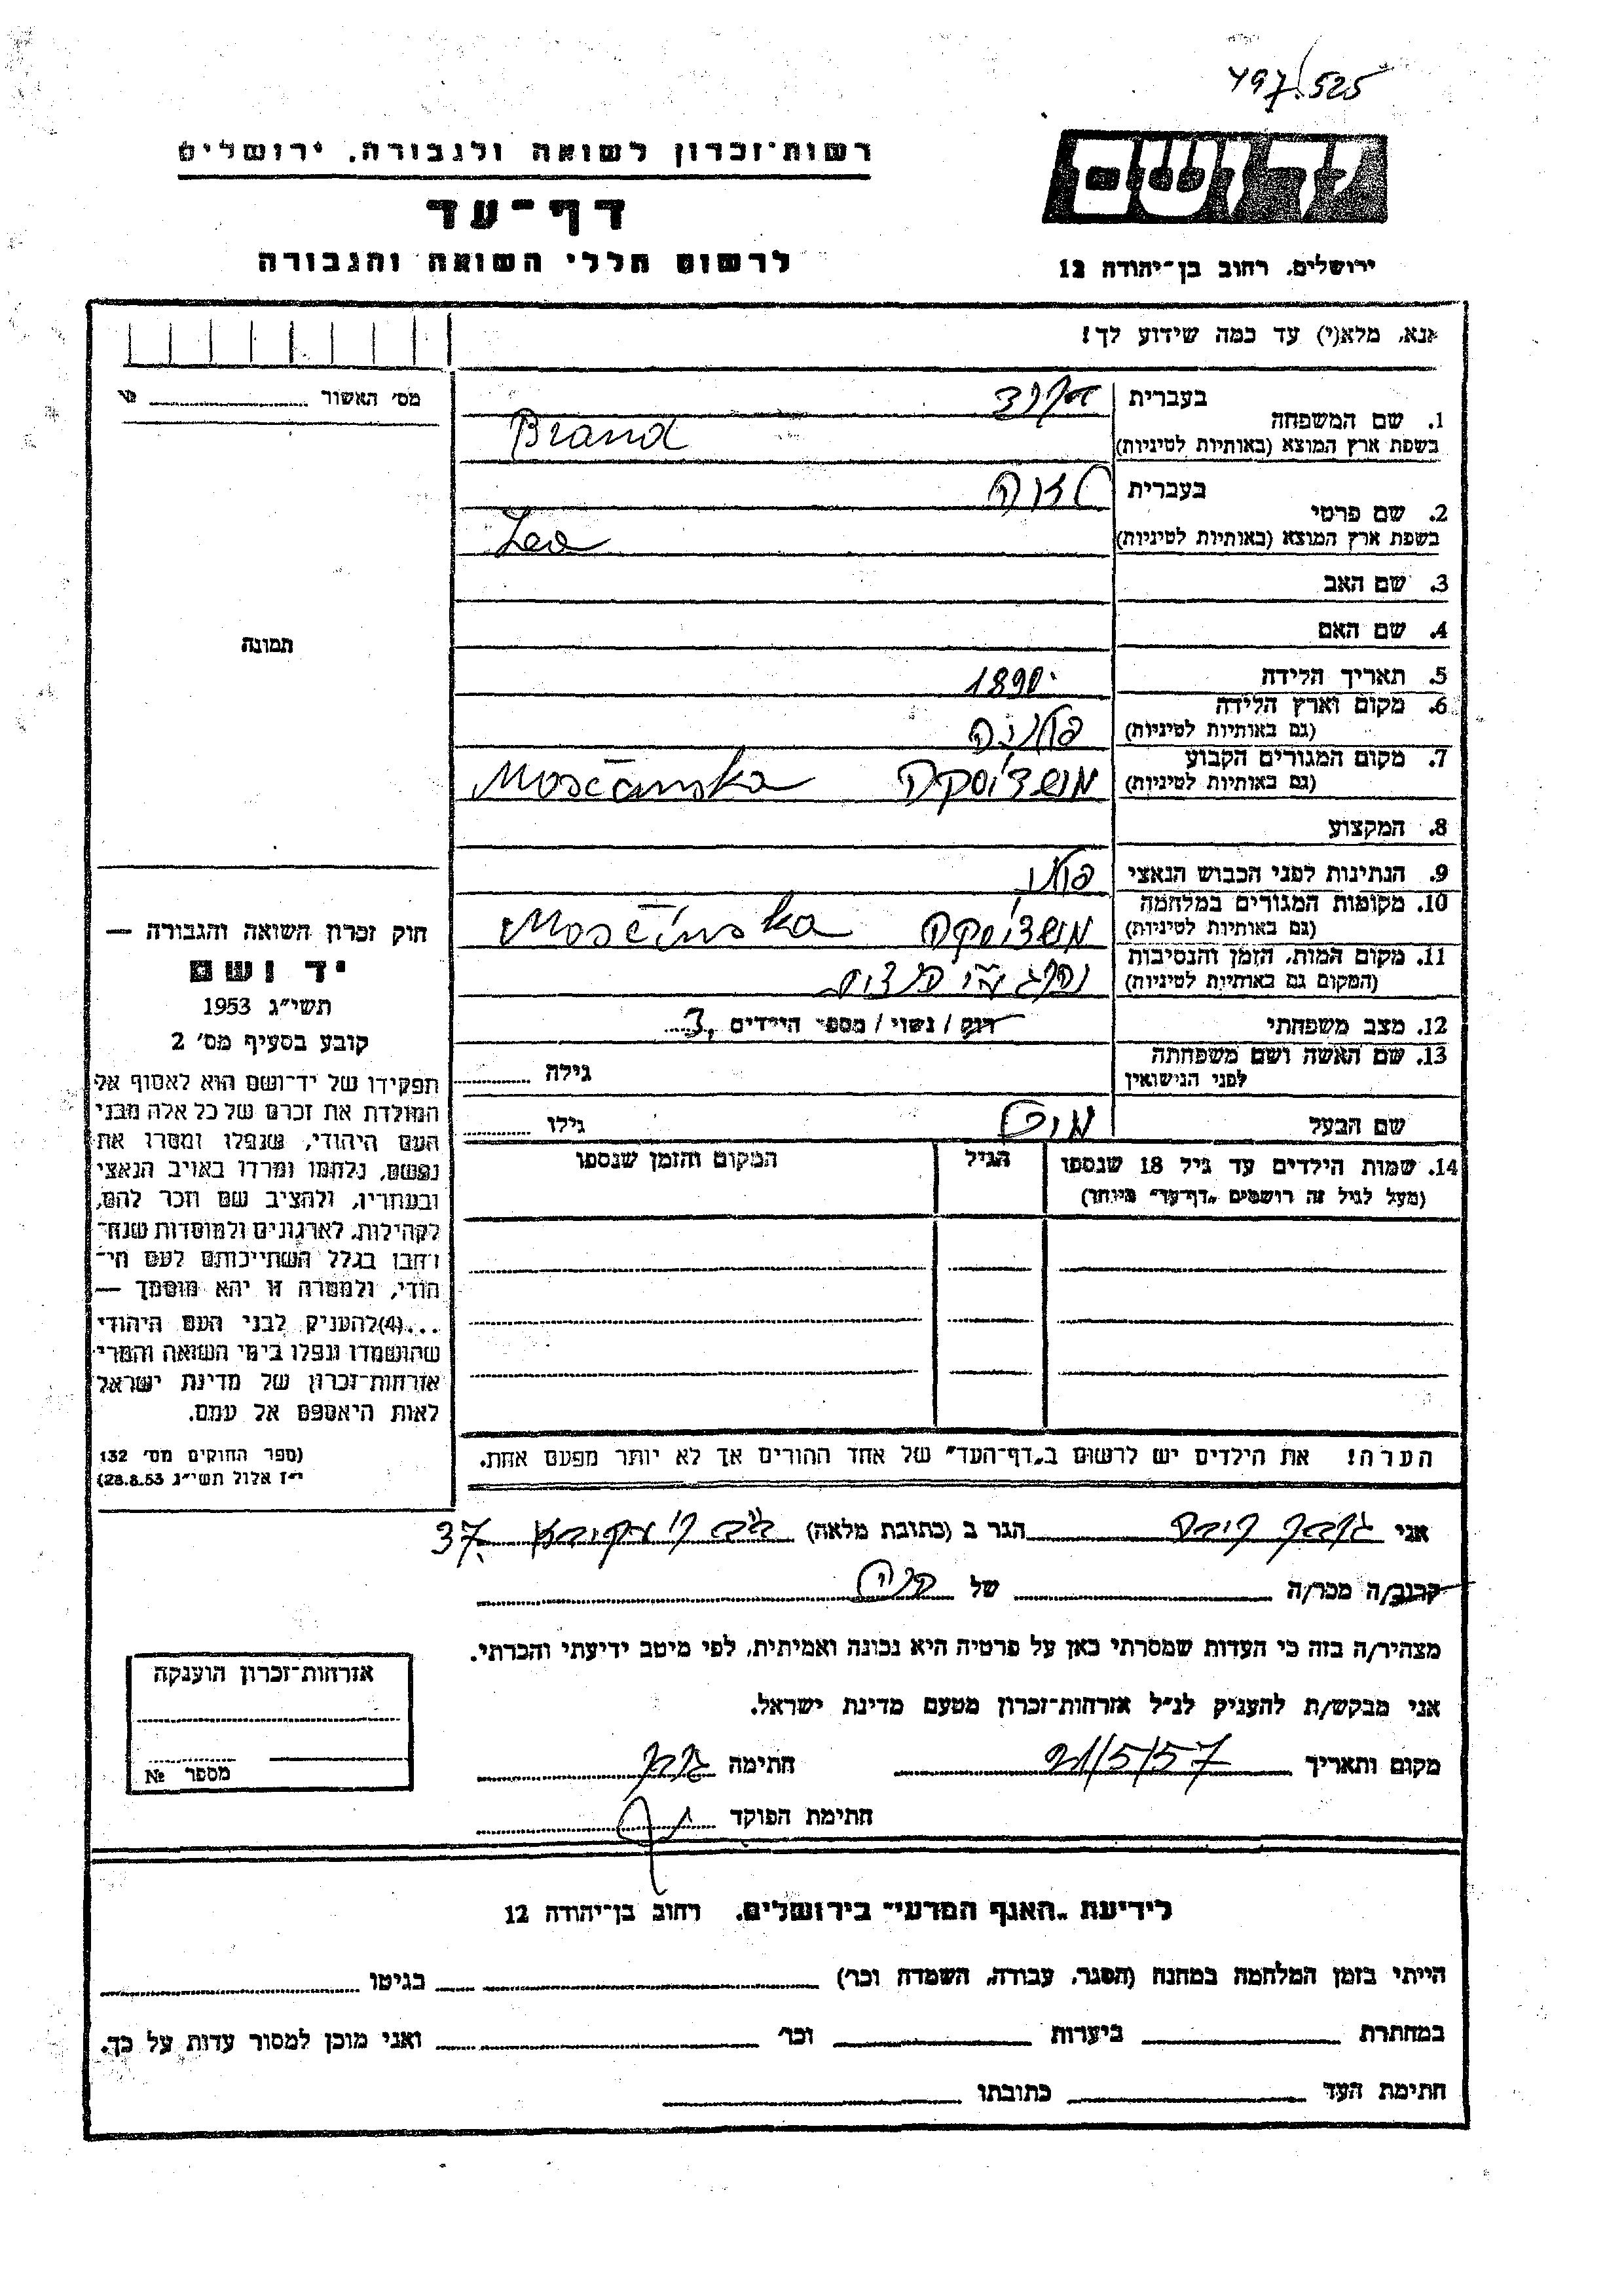 497.525
רשות־זכרון לשואה ולגבורה, ירושלים
יד ושם
דף־עד
לרשום חללי השואה והגבורה
ירושלים, רחוב בן־יהודה 12
אנא, מלא(י) עד כמה שידוע לך!
מס׳ האשור
1. שם המשפחה
בעברית ברנד
בשפת ארץ המוצא (באותיות לטיניות) Brand
2. שם פרטי
בעברית לאה
בשפת ארץ המוצא (באותיות לטיניות) Lea
3. שם האב
4. שם האם
תמונה
5. תאריך הלידה 1890
6. מקום וארץ הלידה
(גם באותיות לטיניות) פולניה
7. מקום המגורים הקבוע
(גם באותיות לטיניות) Mosčanska
8. המקצוע
9. הנתינות לפני הכבוש הנאצי פולני
10. מקומות המגורים במלחמה
(גם באותיות לטיניות) Mosčinska
11. מקום המות, הזמן והנסיבות
(המקום גם באותיות לטיניות)
12. מצב משפחתי
רוק / נשוי / מספר הילדים 3
13. שם האשה ושם משפחתה
לפני הנישואין
גילה
שם הבעל
גילו
14. שמות הילדים עד גיל 18 שנספו
(מעל לגיל זה רושמים „דף־עד״ מיוחד)
הגיל
המקום והזמן שנספו
הערה! את הילדים יש לרשום ב„דף־העד״ של אחד ההורים אך לא יותר מפעם אחת.
חוק זכרון השואה והגבורה —
יד ושם
תשי״ג 1953
קובע בסעיף מס׳ 2
תפקידו של יד־ושם הוא לאסוף אל
המולדת את זכרם של כל אלה מבני
העם היהודי, שנפלו ומסרו את
נפשם, נלחמו ומרדו באויב הנאצי
ובעוזריו, ולהציב שם וזכר להם,
לקהילות, לארגונים ולמוסדות שנח־
רבו בגלל השתייכותם לעם הי־
הודי, ולמטרה זו יהא מוסמך —
...(4)להעניק לבני העם היהודי
שהושמדו ונפלו בימי השואה והמרי
אזרחות־זכרון של מדינת ישראל
לאות היאספם אל עמם.
(ספר החוקים מס׳ 132
י״ז אלול תשי״ג 28.8.53)
אני הגר ב (כתובת מלאה) עקיבא 37
קרוב/ה מכר/ה של
מצהיר/ה בזה כי העדות שמסרתי כאן על פרטיה היא נכונה ואמיתית, לפי מיטב ידיעתי והכרתי.
אני מבקש/ת להעניק לנ״ל אזרחות־זכרון מטעם מדינת ישראל.
מקום ותאריך 21/5/57 חתימה
חתימת הפוקד
אזרחות־זכרון הוענקה
מספר №
לידיעת „האגף המדעי״ בירושלים, רחוב בן־יהודה 12
הייתי בזמן המלחמה במחנה (הסגר, עבודה, השמדה וכו׳) בגיטו
במחתרת ביערות וכו׳ ואני מוכן למסור עדות על כך.
חתימת העד כתובתו